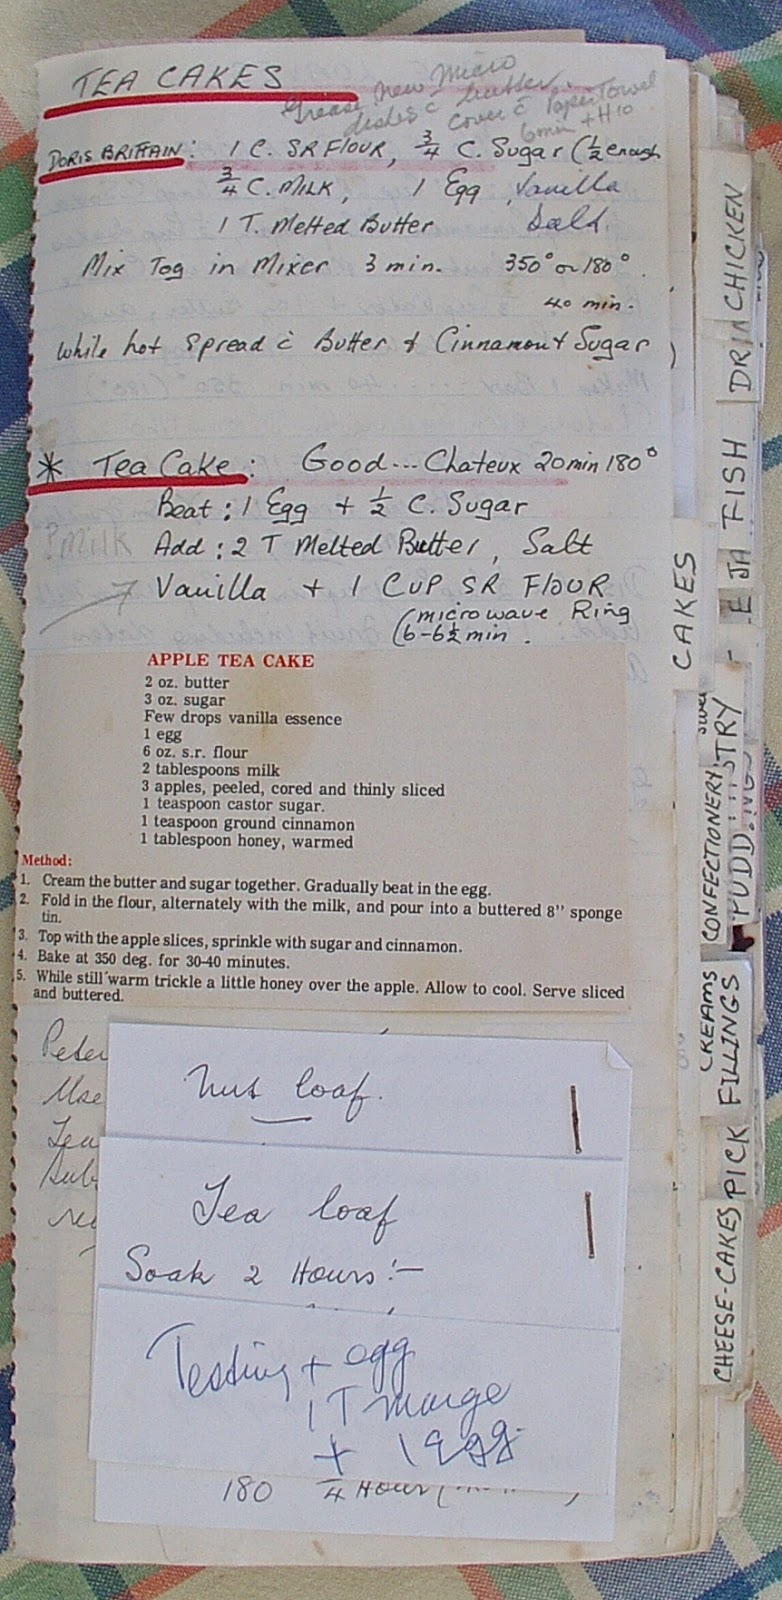 TEA CAKES
Grease New Micro
dishes c̄ butter.
cover c̄ Paper Towel
6 min + H10
DORIS BRITTAIN: 1 C. SR FLOUR, ¾ C. Sugar (½ enough
¾ C. MILK, 1 Egg, Vanilla
1 T. Melted Butter Salt.
Mix Tog in Mixer 3 min. 350° or 180°.
40 min.
While hot Spread c̄ Butter & Cinnamon & Sugar
* Tea Cake: Good... Chateux 20 min 180°
Beat: 1 Egg + ½ C. Sugar
?Milk Add: 2 T Melted Butter, Salt
Vanilla + 1 CUP SR FLOUR
(microwave Ring
6-6½ min.
APPLE TEA CAKE
2 oz. butter
3 oz. sugar
Few drops vanilla essence
1 egg
6 oz. s.r. flour
2 tablespoons milk
3 apples, peeled, cored and thinly sliced
1 teaspoon castor sugar.
1 teaspoon ground cinnamon
1 tablespoon honey, warmed
Method:
1. Cream the butter and sugar together. Gradually beat in the egg.
2. Fold in the flour, alternately with the milk, and pour into a buttered 8" sponge
tin.
3. Top with the apple slices, sprinkle with sugar and cinnamon.
4. Bake at 350 deg. for 30-40 minutes.
5. While still warm trickle a little honey over the apple. Allow to cool. Serve sliced
and buttered.
Peter
Use
Tea
Sub
Nut loaf.
Tea loaf
Soak 2 Hours:—
Testing + egg
1 T marge
+ 1 Egg.
180 ¾ Hour
CHICKEN
DRIN
FISH
JA
CAKES
STRY
CONFECTIONERY
PUDD INGS
CREAMS
FILLINGS
PICK
CHEESE-CAKES